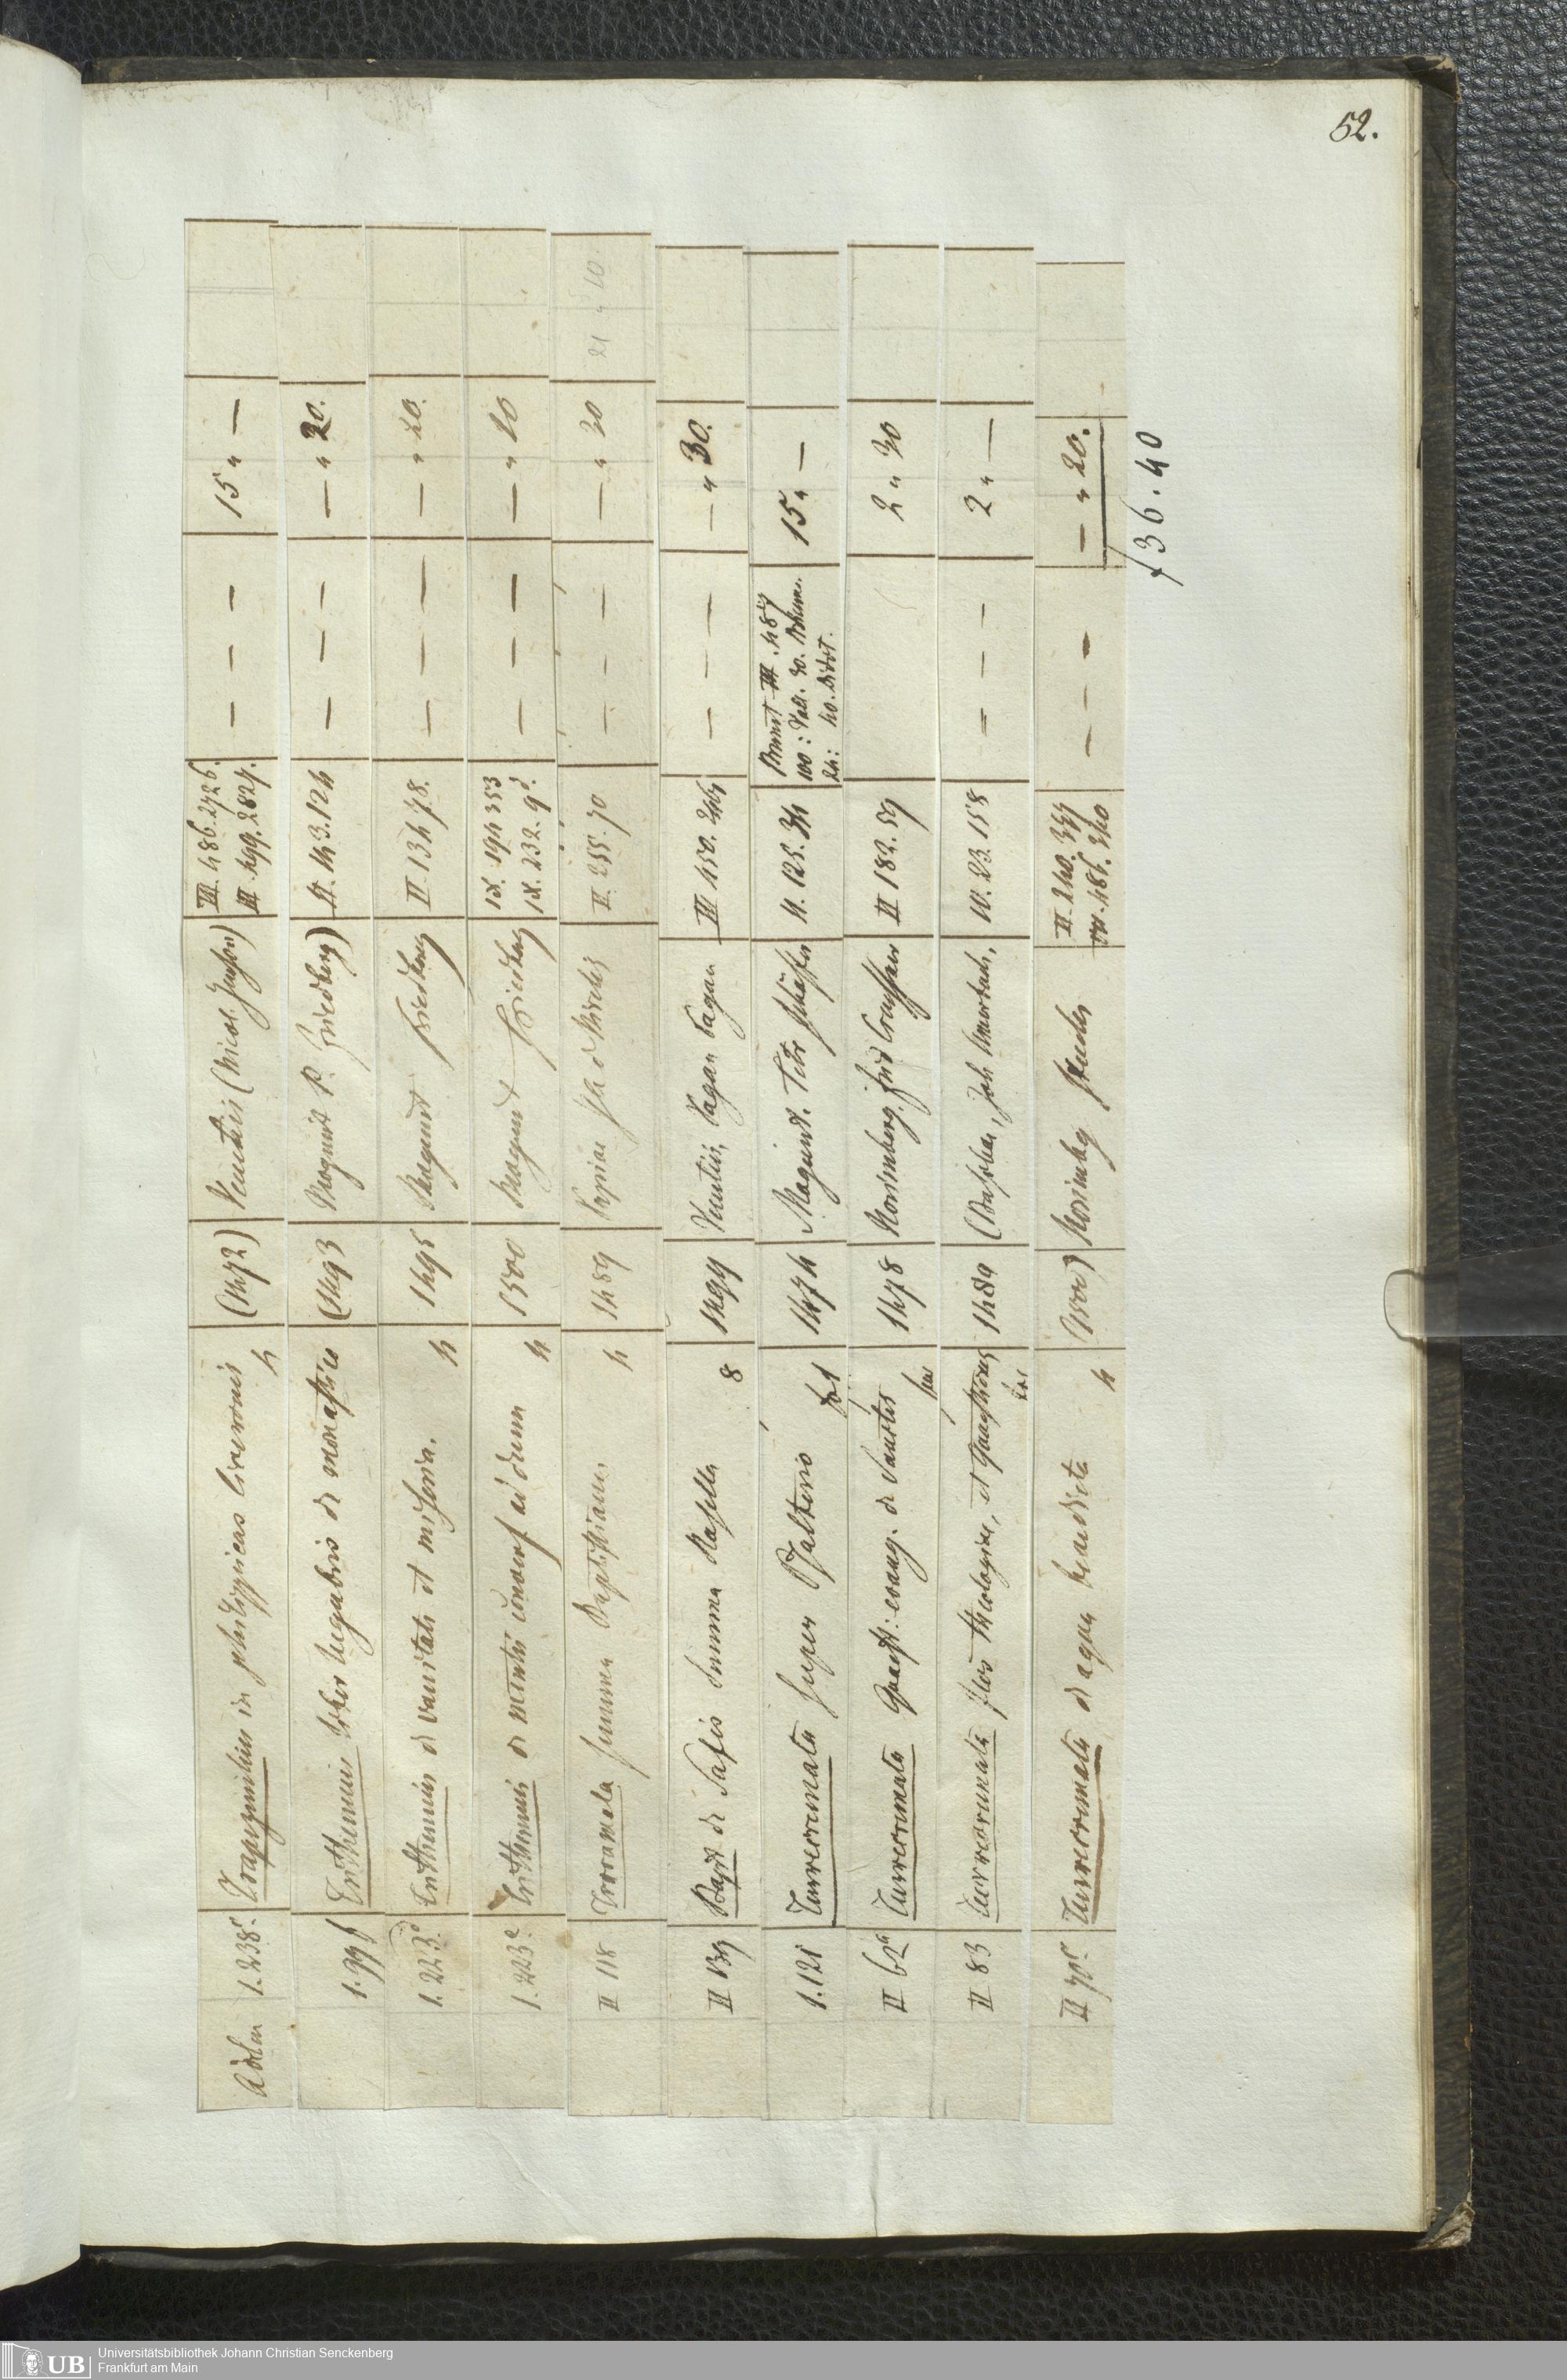 52.
Adlm I. 238c. Trapezuntius in philippicas Ciceronis 4 (1472) Venetiis (Nicol. Jenson) III. 486. 2726. — — — 15 " —
III. 499. 2827.
I. 99f Trithemius liber lugubris de monastico (1493 Mogunt P. Friedberg) II. 143. 124 — — — — " 20.
I. 223d Trithemius de vanitate et miseria. 4 1495 Mogunt Friedberg II 134 78. — — — — " 20.
I. 223e Trithemius de mentis convers ad deum 4 1500 Mogunt Friedberg IX. 194 353 — — — — " 20
IX. 232. 9d.
II 118 Trovamala Summa Baptistiana 4 1489 II. 255. 70 — — — — " 30 21 " 10
II 139 Bapt de Salis Summa Rosella 8 1499 Venetiis, Pagan Pagan III 450. — — — — " 30.
I. 121 Turrecremata super Psalterio fol 1474 Mogunt. Petr Schöffer II. 125. 34 Brunet III. 489
100: Vall. 30.
24: 40. Didot. 15 " —
II 62a Turrecremata Quaest. evang. de Sanctis fol 1478 Norimberg. Frid Creussner II 182. 59 2 " 30
II 83 Turrecremata flos theologiae, et Quaestiones fol 1484 (Basileae, Joh Amerbach, IV. 23. 158 — — — 2 " —
II 70c Turrecremata de aqua benedicta 4 (1500) Norimbg II. 240. — — — — " 20.
f 36. 40
Universitätsbibliothek Johann Christian Senckenberg
Frankfurt am Main
UB